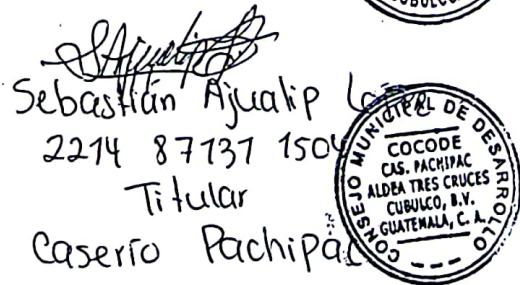 CUBULCO
Sebastián Ajualip
2214 87131 1504
Titular
Caserío Pachipac
CONSEJO MUNICIPAL DE DESARROLLO
COCODE
CAS. PACHIPAC
ALDEA TRES CRUCES
CUBULCO, B.V.
GUATEMALA, C. A.